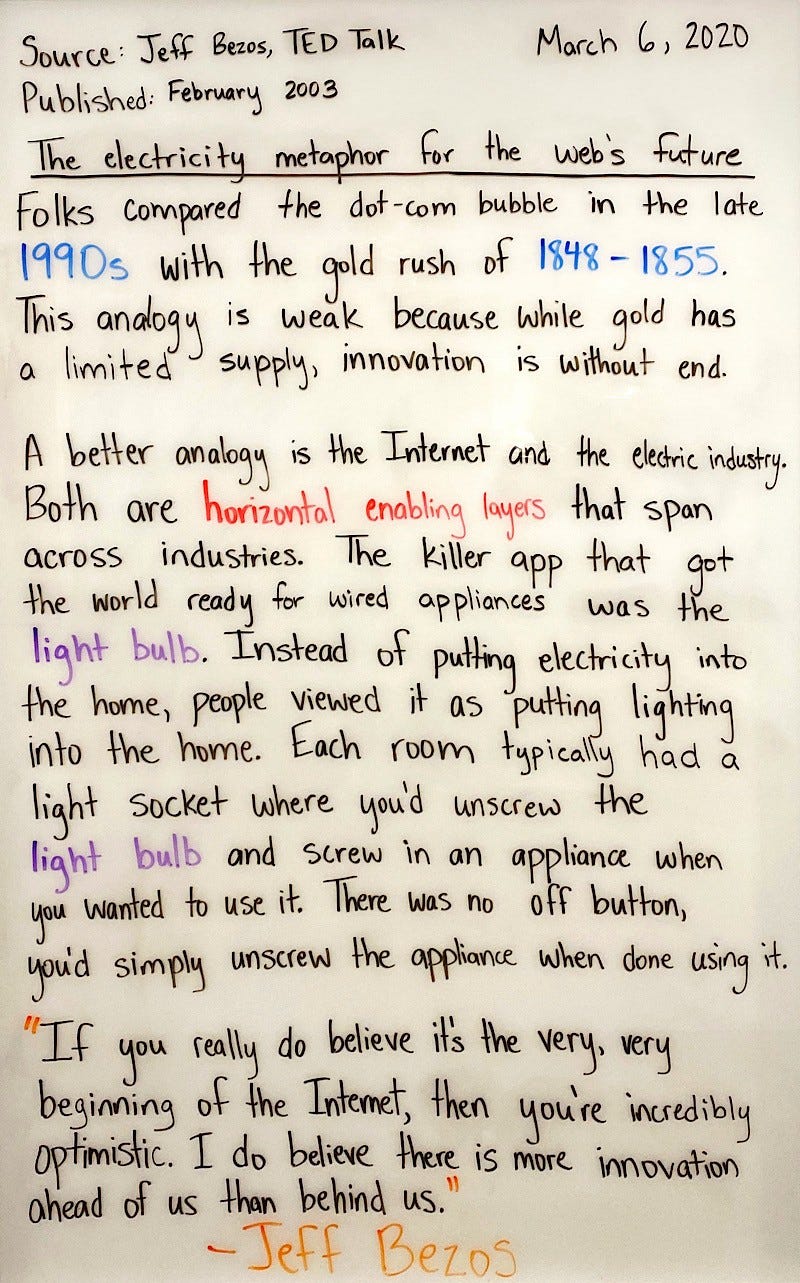 Source: Jeff Bezos, TED Talk March 6, 2020
Published: February 2003
The electricity metaphor for the web's future
Folks compared the dot-com bubble in the late
1990s with the gold rush of 1848 - 1855.
This analogy is weak because while gold has
a limited supply, innovation is without end.
A better analogy is the Internet and the electric industry.
Both are horizontal enabling layers that span
across industries. The killer app that got
the world ready for wired appliances was the
light bulb. Instead of putting electricity into
the home, people viewed it as putting lighting
into the home. Each room typically had a
light socket where you'd unscrew the
light bulb and screw in an appliance when
you wanted to use it. There was no off button,
you'd simply unscrew the appliance when done using it.
"If you really do believe it's the very, very
beginning of the Internet, then you're incredibly
optimistic. I do believe there is more innovation
ahead of us than behind us."
- Jeff Bezos